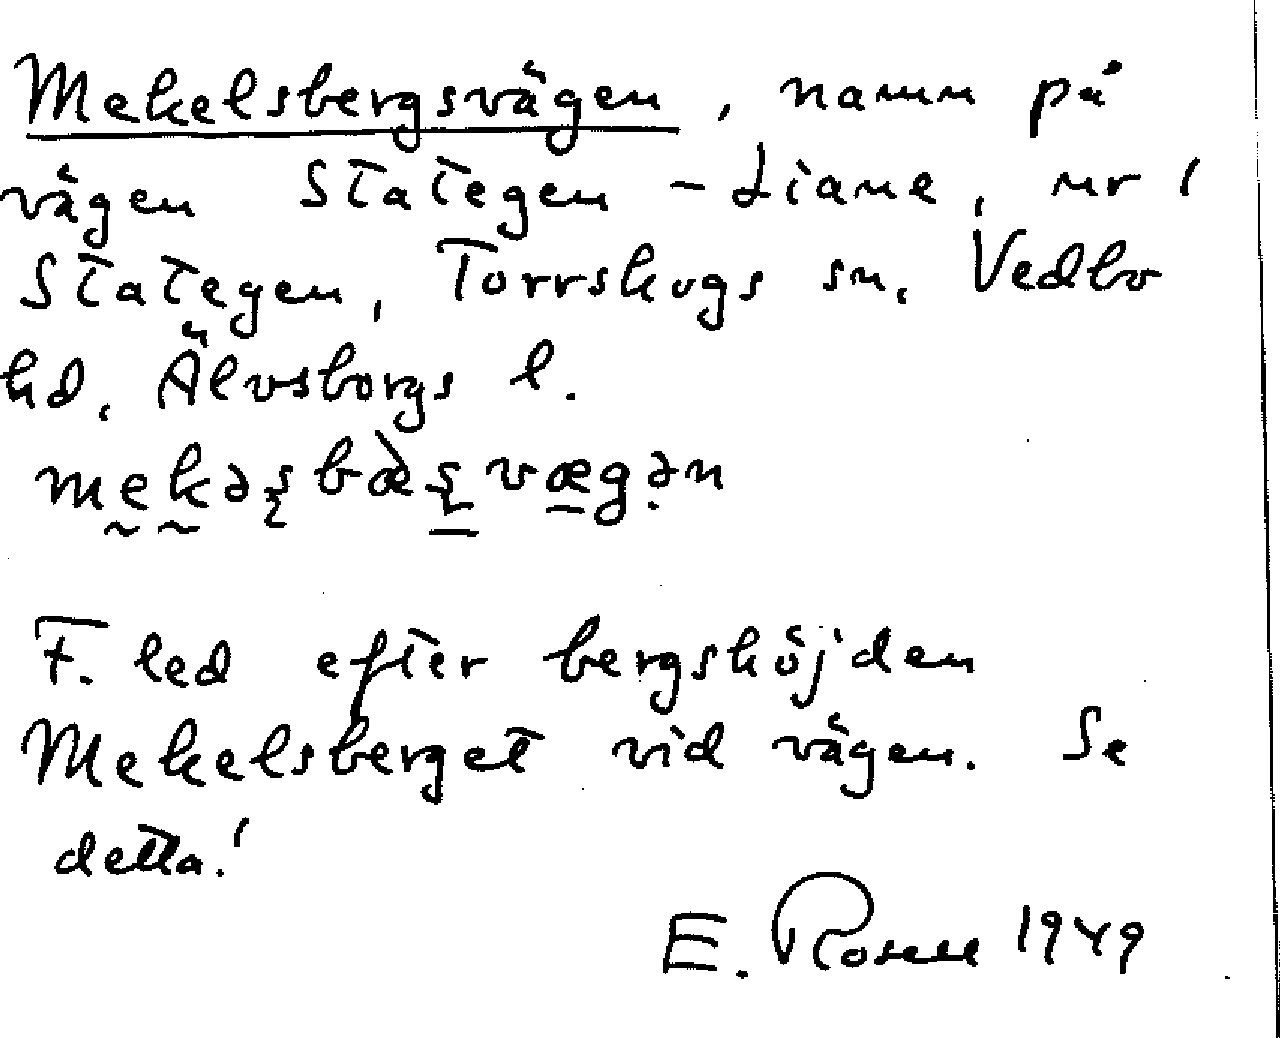 Mekelsbergsvägen, namn på
vägen Stategen - Liane, nr 1
Stategen, Torrskogs sn, Vedbo
hd, Älvsborgs l.
mekəʂbæ̀ʂvægən
F. led efter bergshöjden
Mekelsberget vid vägen. Se
detta!
E. Rosell 1949